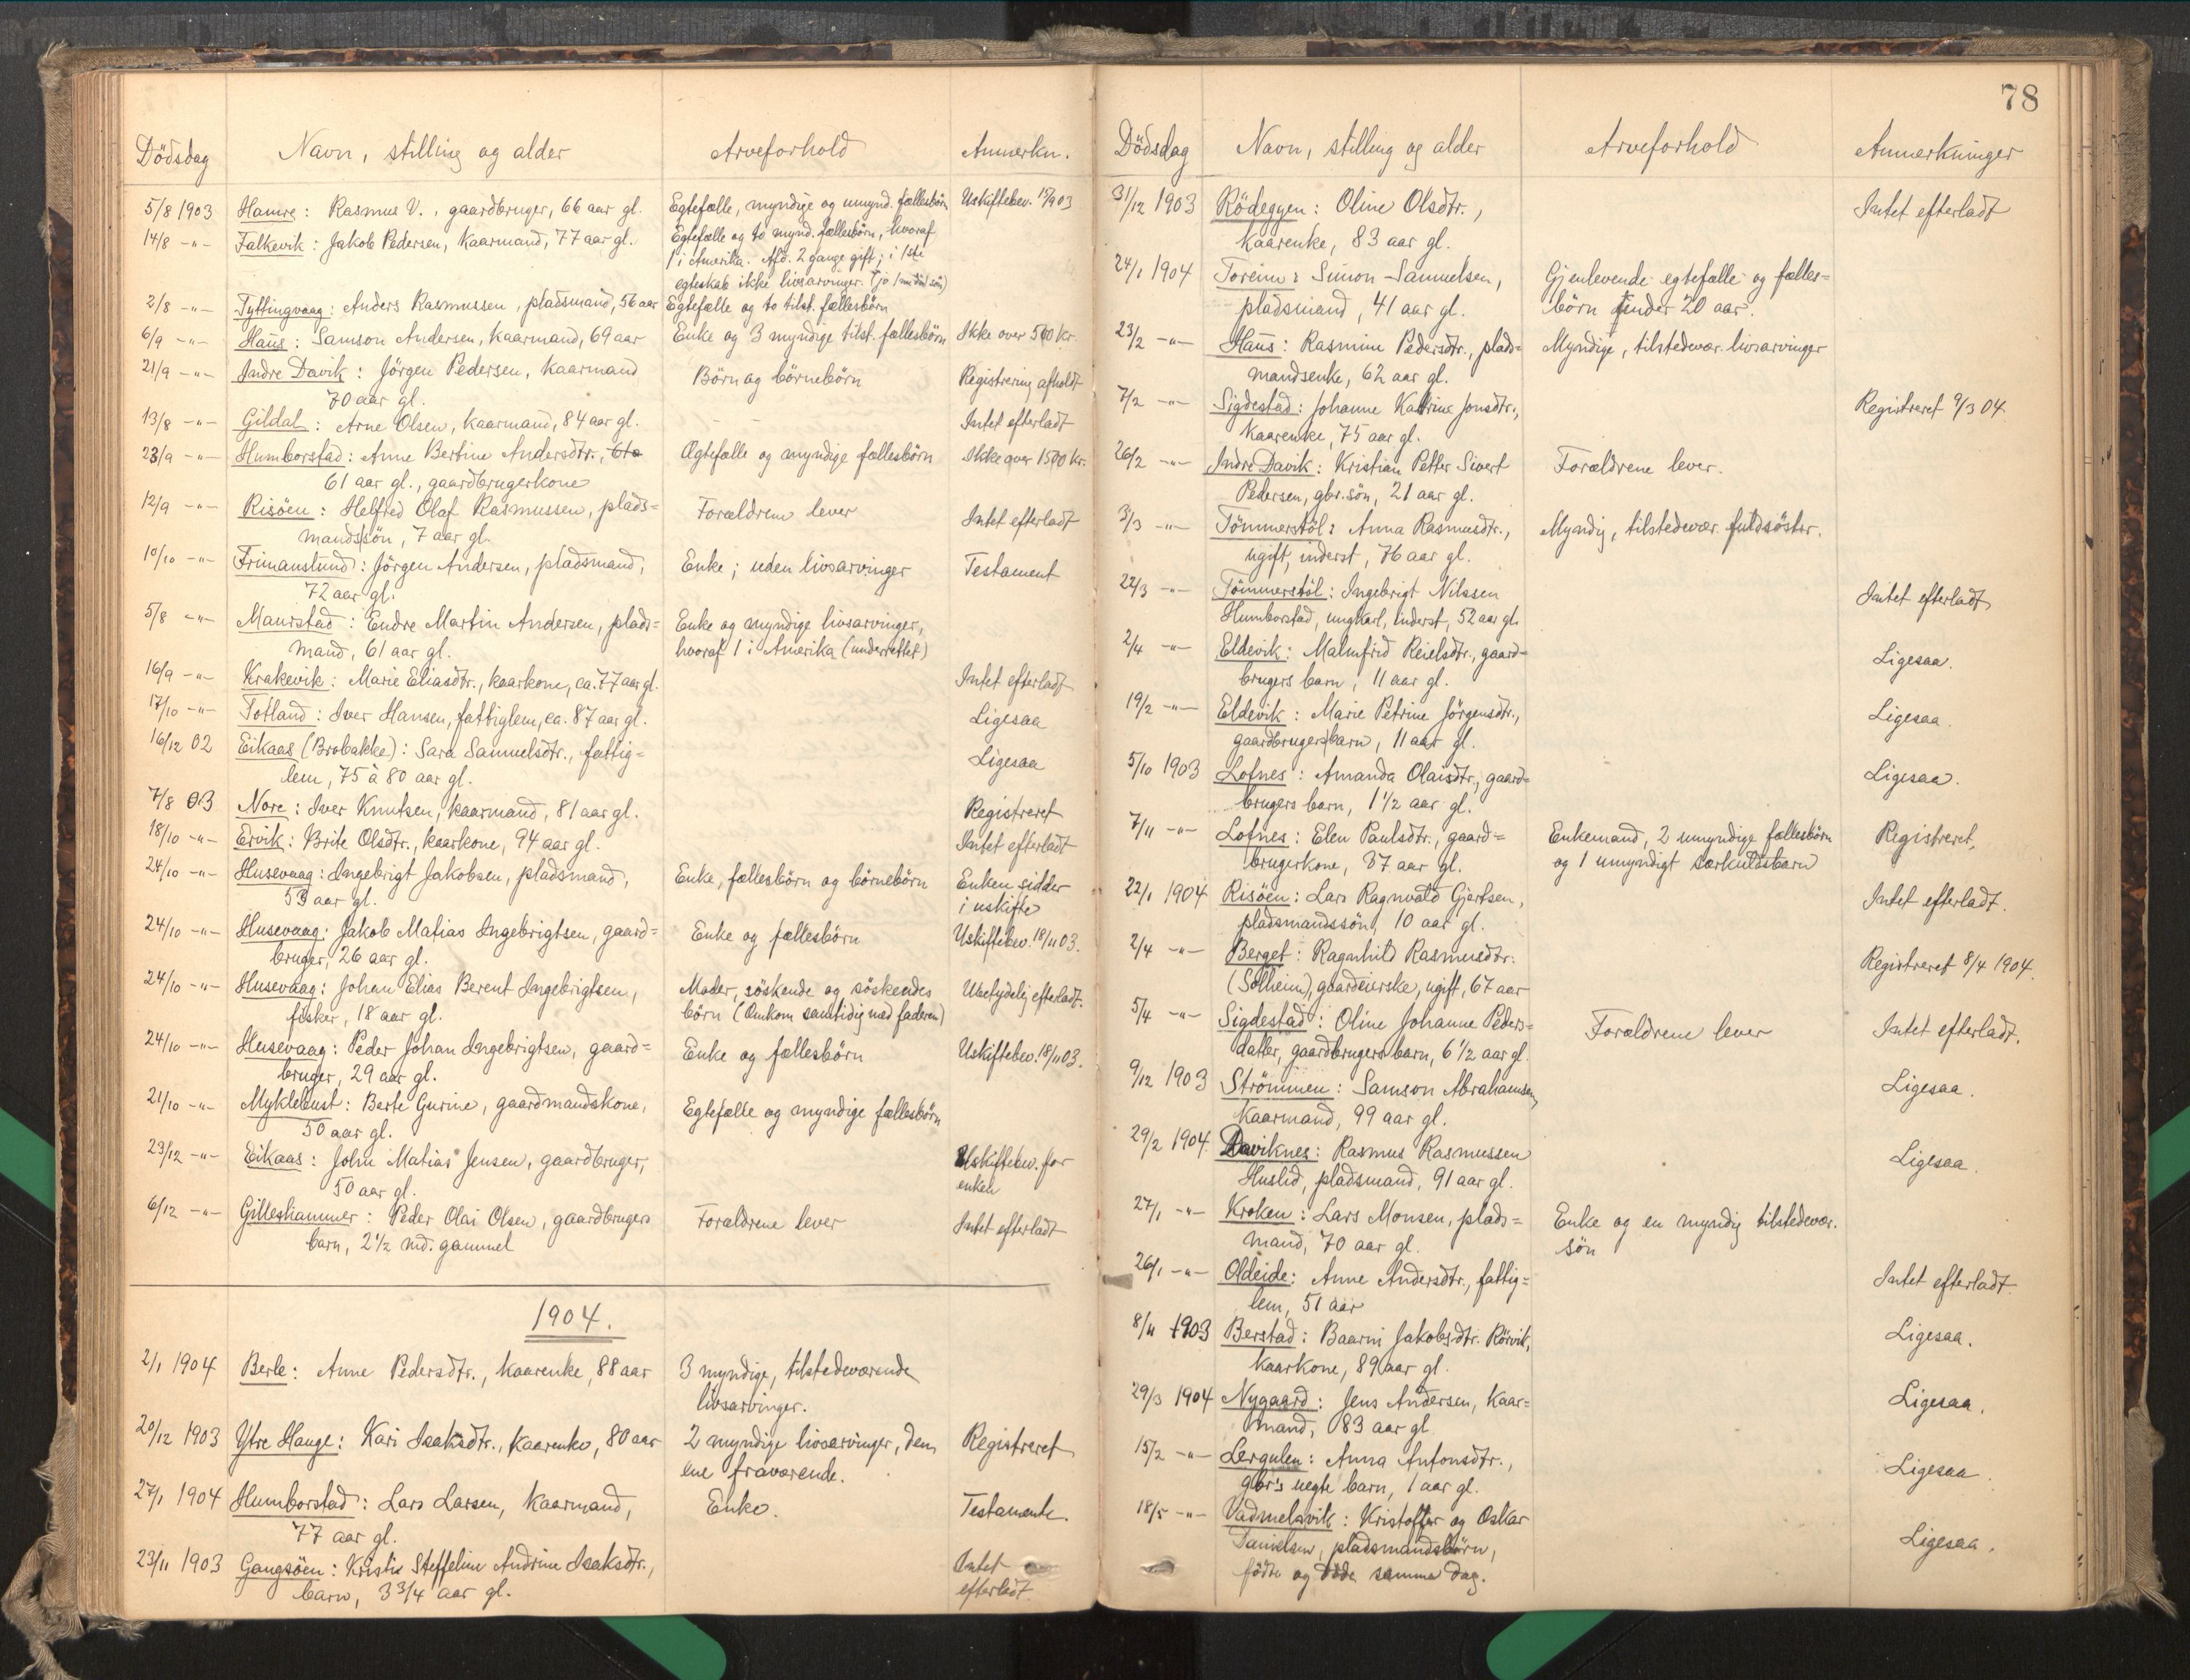 78
Dödsdag Navn, stilling og alder Arveforhold Anmerkn.
5/8 1903 Hamre: Rasmus V., gaardbruger, 66 aar gl. Egtefælle, myndige og umynd. fællesbörn Uskiftebev. 15/9 03
14/8 -"- Falkevik: Jakob Pedersen, Kaarmand, 77 aar gl. Egtefælle og to mynd. fællesbörn, hvoraf
1 i Amerika. Afd. 2 gange gift; i 1ste
egteskab ikke livsarvinger.
2/8 -"- Tyttingvaag: Anders Rasmussen, pladsmand, 56 aar Egtefælle og to tilst. fællesbörn
6/9 -"- Haus: Samson Andersen, Kaarmand, 69 aar Enke og 3 myndige tilst. fællesbörn Ikke over 500 Kr.
21/9 -"- Indre Davik: Jörgen Pedersen, Kaarmand Börn og börnebörn Registrering afholdt
70 aar gl.
13/8 -"- Gildal: Arne Olsen, kaarmand, 84 aar gl. - - Intet efterladt
23/9 -"- Humborstad: Anne Bertine Andersdtr., Ægtefælle og myndige fællesbörn Ikke over 1500 Kr.
61 aar gl., gaardbrugerkone
12/9 -"- Risöen: Helfred Olaf Rasmussen, plads= Forældrene lever Intet efterladt
mandssön, 7 aar gl.
10/10 -"- Frimanslund: Jörgen Andersen, pladsmand, Enke; uden livsarvinger Testament
72 aar gl.
5/8 -"- Maurstad: Endre Martin Andersen, plads= Enke og myndige livsarvinger,
mand, 61 aar gl. hvoraf 1 i Amerika (underrettet)
16/9 -"- Krakevik: Marie Eliasdtr., kaarkone, ca. 77 aar gl. Intet efterladt
17/10 -"- Totland: Iver Hansen, fattiglem, ca. 87 aar gl. Ligesaa
16/12 02 Eikaas (Brobakke): Sara Samuelsdtr., fattig= Ligesaa
lem, 75 à 80 aar gl.
7/8 03 Nore: Iver Knutsen, kaarmand, 81 aar gl. Registreret
18/10 -"- Ervik: Brite Olsdtr., kaarkone, 94 aar gl. Intet efterladt
24/10 -"- Husevaag: Ingebrigt Jakobsen, pladsmand, Enke, fællesbörn og börnebörn Enken sidder
53 aar gl. i uskifte
24/10 -"- Husevaag: Jakob Matias Ingebrigtsen, gaard= Enke og fællesbörn Uskiftebev. 18/11 03.
bruger, 26 aar gl.
24/10 -"- Husevaag: Johan Elias Berent Ingebrigtsen, Moder, söskende og söskendes Ubetydelig efterladt.
fisker, 18 aar gl. börn (Omkom samtidig med faderen)
24/10 -"- Husevaag: Peder Johan Ingebrigtsen, gaard= Enke og fællesbörn Uskiftebev. 18/11 03.
bruger, 29 aar gl.
21/10 -"- Myklebust: Berte Gurine, gaardmandskone, Egtefælle og myndige fællesbörn
50 aar gl.
23/12 -"- Eikaas: John Matias Jensen, gaardbruger, Uskiftebev. for
50 aar gl. enken
6/12 -"- Gilleshammer: Peder Olai Olsen, gaardbrugers Forældrene lever Intet efterladt
barn, 2 1/2 md. gammel
1904.
2/1 1904 Berle: Anne Pedersdtr., kaarenke, 88 aar 3 myndige, tilstedeværende
livsarvinger.
20/12 1903 Ytre Hauge: Kari Isaksdtr., kaarenke, 80 aar 2 myndige livsarvinger, den Registreret
ene fraværende.
27/1 1904 Humborstad: Lars Larsen, Kaarmand, Enke. Testamente.
77 aar gl.
23/11 1903 Gangsöen: Kristie Steffeline Andrine Isaksdtr., Intet
barn, 3 3/4 aar gl. efterladt.
Dödsdag Navn, stilling og alder Arveforhold Anmerkninger
31/12 1903 Rödeggen: Oline Olsdtr., Intet efterladt
kaarenke, 83 aar gl.
24/1 1904 Toreim: Simon Samuelsen, Gjenlevende egtefælle og fælles=
pladsmand, 41 aar gl. börn under 20 aar.
23/2 -"- Haus: Rasmine Pedersdtr., plads= Myndige, tilstedevær. livsarvinger
mandsenke, 62 aar gl.
7/2 -"- Sigdestad: Johanne Katrine Jonsdtr., Registreret 9/3 04.
Kaarenke, 75 aar gl.
26/2 -"- Indre Davik: Kristian Petter Sivert Forældrene lever.
Pedersen, gbr. sön, 21 aar gl.
3/3 -"- Tömmerstöl: Anna Rasmusdtr., Myndig, tilstedevær. fuldsöster.
ugift, inderst, 76 aar gl.
22/3 -"- Tömmerstöl: Ingebrigt Nilssen Intet efterladt
Humborstad, ungkarl, inderst, 52 aar gl.
2/4 -"- Eldevik: Malmfrid Reielsdtr., gaard= Ligesaa.
brugers barn, 11 aar gl.
19/2 -"- Eldevik: Marie Petrine Jörgensdtr., Ligesaa.
gaardbrugers barn, 11 aar gl.
5/10 1903 Lofnes: Amanda Olaisdtr., gaard= Ligesaa.
brugers barn, 1 1/2 aar gl.
7/11 -"- Lofnes: Elen Paulsdtr., gaard= Enkemand, 2 umyndige fællesbörn Registreret.
brugerkone, 37 aar gl. og 1 umyndigt særkuldsbarn
22/1 1904 Risöen: Lars Ragnvald Gjertsen, Intet efterladt.
pladsmandssön, 10 aar gl.
2/4 -"- Berget: Ragnhild Rasmusdtr. Registreret 8/4 1904.
(Solheim), gaardeierske, ugift, 67 aar
5/4 -"- Sigdestad: Oline Johanne Peders= Forældrene lever Intet efterladt.
datter, gaardbrugers barn, 6 1/2 aar gl.
9/12 1903 Strömmen: Samson Abrahamsen, Ligesaa.
Kaarmand, 99 aar gl.
29/2 1904 Daviknes: Rasmus Rasmussen Ligesaa.
Huslid, pladsmand, 91 aar gl.
27/1 -"- Kroken: Lars Monsen, plads= Enke og en myndig tilstedevær.
mand, 70 aar gl. sön
26/1 -"- Oldeide: Anne Andersdtr., fattig= Intet efterladt.
lem, 51 aar
8/11 1903 Berstad: Baarni Jakobsdtr. Rörvik, Ligesaa.
kaarkone, 89 aar gl.
29/3 1904 Nygaard: Jens Andersen, Kaar= Ligesaa.
mand, 83 aar gl.
15/2 -"- Lergulen: Anna Antonsdtr., Ligesaa.
gbr's uegte barn, 1 aar gl.
18/5 -"- Vadmelsvik: Kristoffer og Oskar Ligesaa.
Danielsen, pladsmandsbörn,
födte og döde samme dag.